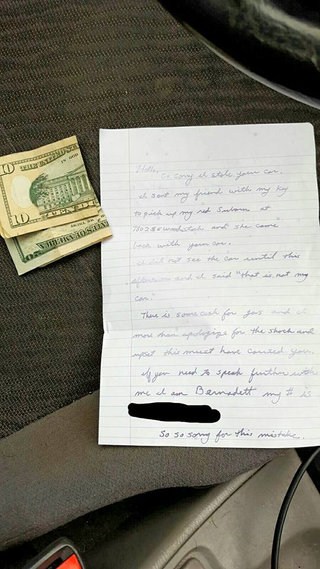 Hello,
So sorry I stole your car.
I sent my friend with my key
to pick up my red Subaru at
and she came
back with your car.
I did not see the car until this
afternoon and I said "that is not my
car."
There is some cash for gas and I
more than apologize for the shock and
upset this must have caused you.
If you need to speak further with
me I am Bernadett my # is
So so sorry for this mistake.
10
10
STATES OF AMERICA